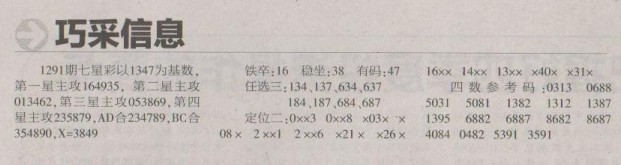 巧采信息
1291期七星彩以1347为基数,
第一星主攻164935, 第二星主攻
013462,第三星主攻053869,第四
星主攻235879,AD合234789,BC合
354890,X=3849
铁卒:16 稳坐:38 有码:47
任选三:134,137,634,637
184,187,684,687
定位二:0xx3 0xx8 x03x x
08 x 2 xx1 2 xx6 x21 x x26 x
16xx 14xx 13xx x40x x31x
四数参考码:0313 0688
5031 5081 1382 1312 1387
1395 6882 6887 8682 8687
4084 0482 5391 3591